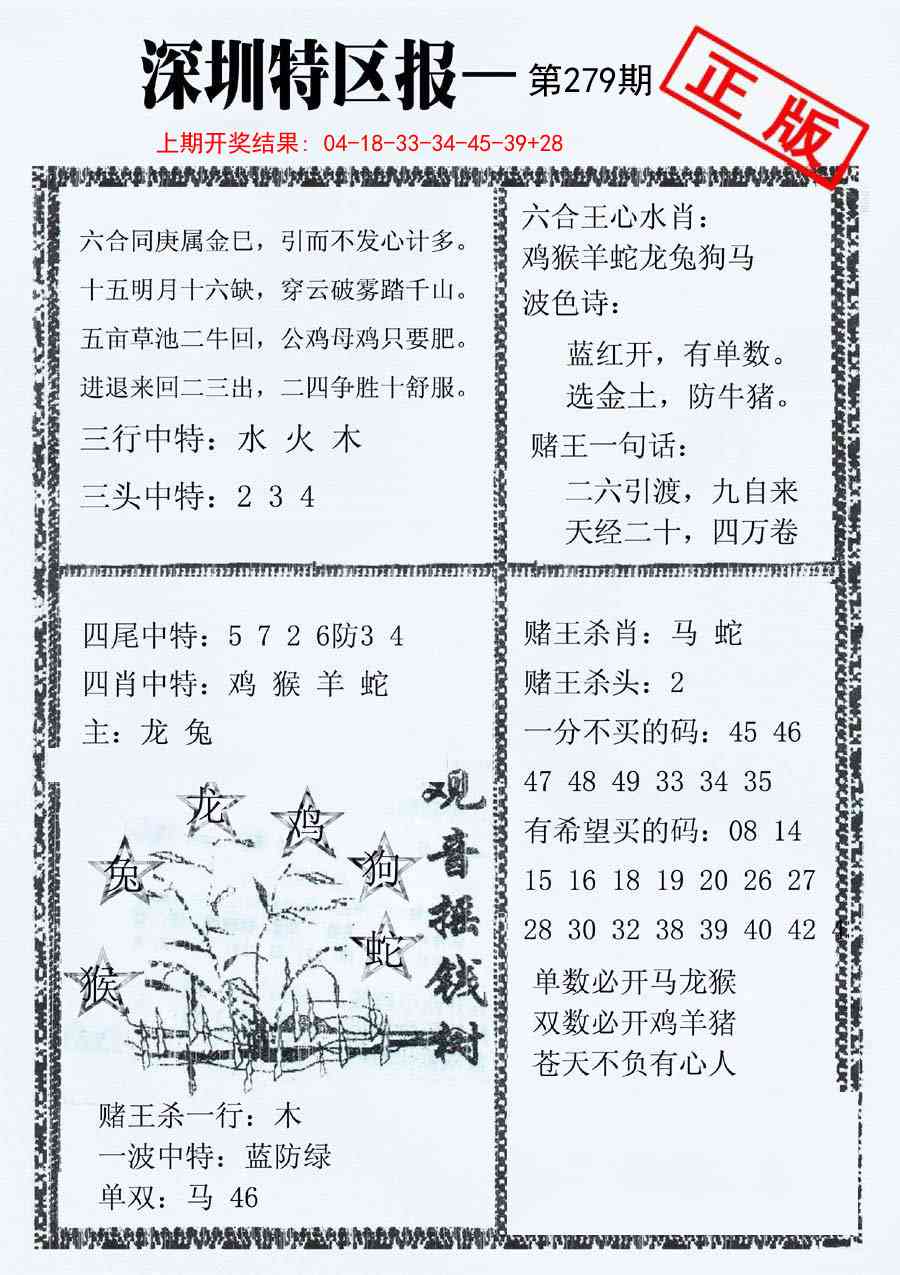 深圳特区报—第279期
正版
上期开奖结果：04-18-33-34-45-39+28
六合同庚属金巳，引而不发心计多。
十五明月十六缺，穿云破雾踏千山。
五亩草池二牛回，公鸡母鸡只要肥。
进退来回二三出，二四争胜十舒服。
三行中特：水 火 木
三头中特：2 3 4
六合王心水肖：
鸡猴羊蛇龙兔狗马
波色诗：
蓝红开，有单数。
选金土，防牛猪。
赌王一句话：
二六引渡，九自来
天经二十，四万卷
四尾中特：5 7 2 6防3 4
四肖中特：鸡 猴 羊 蛇
主：龙 兔
龙
鸡
兔
狗
蛇
猴
观音摇钱树
赌王杀一行：木
一波中特：蓝防绿
单双：马 46
赌王杀肖：马 蛇
赌王杀头：2
一分不买的码：45 46
47 48 49 33 34 35
有希望买的码：08 14
15 16 18 19 20 26 27
28 30 32 38 39 40 42
单数必开马龙猴
双数必开鸡羊猪
苍天不负有心人